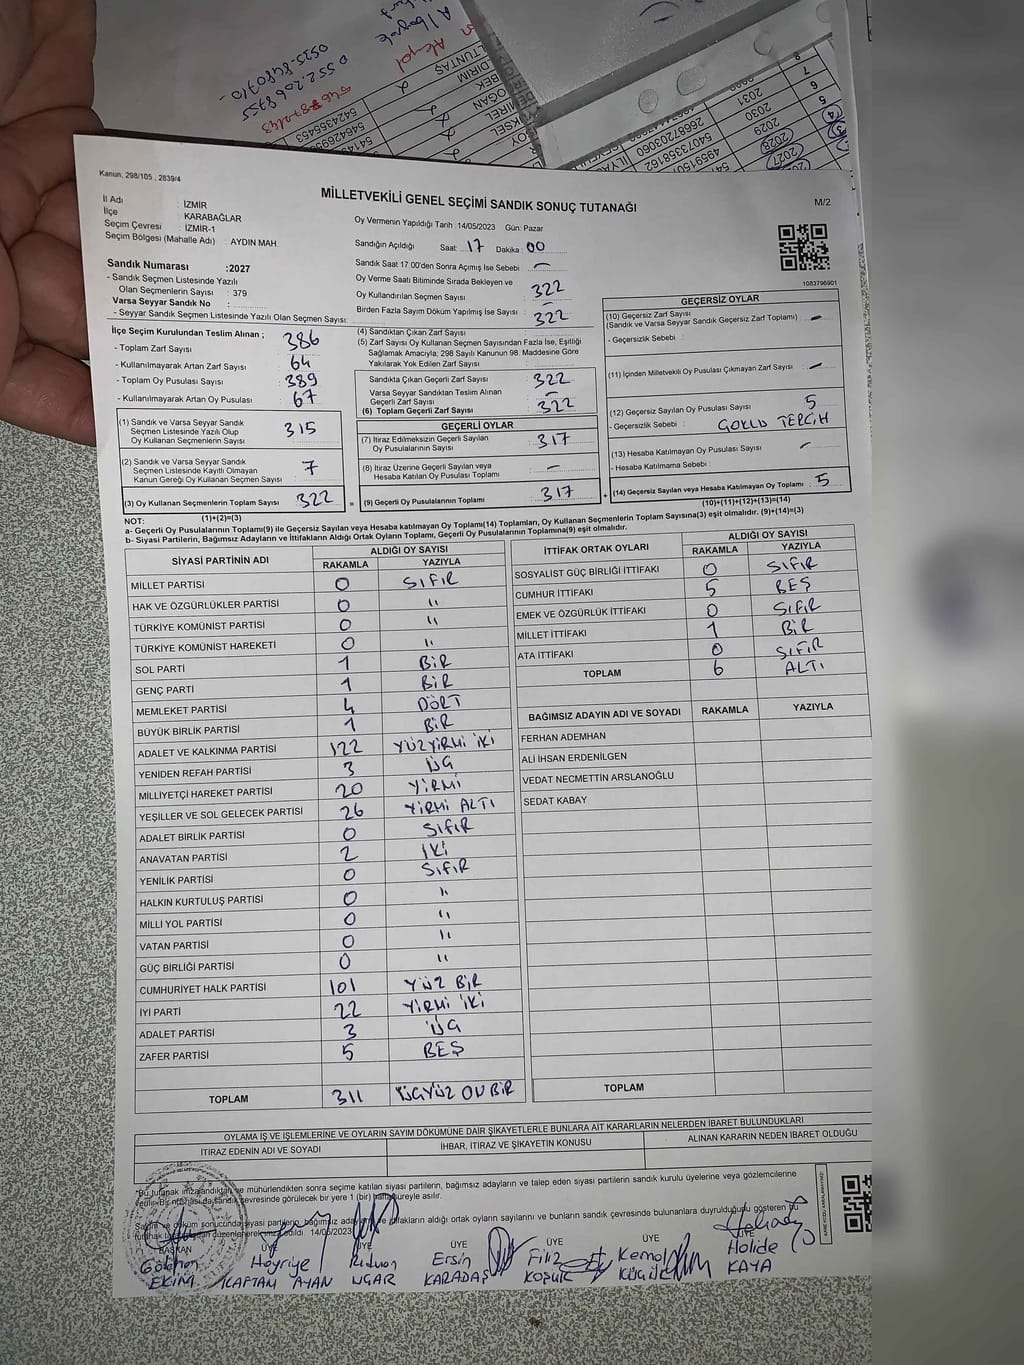 0552.206 8755
0535.8480710-
5424355453
TUNTAŞ
DIRIM
BEK
OĞAN
2668720306
54073358162
2031
2030
2029
2028
2027
7
6
5
4
Kanun, 298/105 , 2839/4
MİLLETVEKİLİ GENEL SEÇİMİ SANDIK SONUÇ TUTANAĞI
M/2
İl Adı : İZMİR
İlçe : KARABAĞLAR
Seçim Çevresi : İZMİR-1
Seçim Bölgesi (Mahalle Adı) : AYDIN MAH.
Oy Vermenin Yapıldığı Tarih :14/05/2023 Gün: Pazar
Sandığın Açıldığı Saat: 17 Dakika: 00
Sandık Saat 17:00'den Sonra Açılmış İse Sebebi : –
Oy Verme Saati Bitiminde Sırada Bekleyen ve
Oy Kullandırılan Seçmen Sayısı : 322
Birden Fazla Sayım Döküm Yapılmış İse Sayısı : –
Sandık Numarası :2027
- Sandık Seçmen Listesinde Yazılı
Olan Seçmenlerin Sayısı : 379
Varsa Seyyar Sandık No :
- Seyyar Sandık Seçmen Listesinde Yazılı Olan Seçmen Sayısı:
1083796901
İlçe Seçim Kurulundan Teslim Alınan ;
- Toplam Zarf Sayısı : 386
- Kullanılmayarak Artan Zarf Sayısı : 64
- Toplam Oy Pusulası Sayısı : 389
- Kullanılmayarak Artan Oy Pusulası : 67
(1) Sandık ve Varsa Seyyar Sandık
Seçmen Listesinde Yazılı Olup
Oy Kullanan Seçmenlerin Sayısı : 315
(2) Sandık ve Varsa Seyyar Sandık
Seçmen Listesinde Kayıtlı Olmayan
Kanun Gereği Oy Kullanan Seçmen Sayısı : 7
(3) Oy Kullanan Seçmenlerin Toplam Sayısı : 322
(1)+(2)=(3)
(4) Sandıktan Çıkan Zarf Sayısı : 322
(5) Zarf Sayısı Oy Kullanan Seçmen Sayısından Fazla İse, Eşitliği
Sağlamak Amacıyla; 298 Sayılı Kanunun 98. Maddesine Göre
Yakılarak Yok Edilen Zarf Sayısı :
Sandıkta Çıkan Geçerli Zarf Sayısı : 322
Varsa Seyyar Sandıktan Teslim Alınan
Geçerli Zarf Sayısı : –
(6) Toplam Geçerli Zarf Sayısı : 322
GEÇERLİ OYLAR
(7) İtiraz Edilmeksizin Geçerli Sayılan
Oy Pusulalarının Sayısı : 317
(8) İtiraz Üzerine Geçerli Sayılan veya
Hesaba Katılan Oy Pusulası Toplamı : –
= (9) Geçerli Oy Pusulalarının Toplamı : 317
GEÇERSİZ OYLAR
(10) Geçersiz Zarf Sayısı
(Sandık ve Varsa Seyyar Sandık Geçersiz Zarf Toplamı) : –
- Geçersizlik Sebebi :
(11) İçinden Milletvekili Oy Pusulası Çıkmayan Zarf Sayısı : –
(12) Geçersiz Sayılan Oy Pusulası Sayısı : 5
- Geçersizlik Sebebi : ÇOKLU TERCİH
(13) Hesaba Katılmayan Oy Pusulası Sayısı : –
- Hesaba Katılmama Sebebi :
+ (14) Geçersiz Sayılan veya Hesaba Katılmayan Oy Toplamı : 5
(10)+(11)+(12)+(13)=(14)
NOT:
a- Geçerli Oy Pusulalarının Toplamı(9) ile Geçersiz Sayılan veya Hesaba katılmayan Oy Toplamı(14) Toplamları, Oy Kullanan Seçmenlerin Toplam Sayısına(3) eşit olmalıdır. (9)+(14)=(3)
b- Siyasi Partilerin, Bağımsız Adayların ve İttifakların Aldığı Ortak Oyların Toplamı, Geçerli Oy Pusulalarının Toplamına(9) eşit olmalıdır.
SİYASİ PARTİNİN ADI ALDIĞI OY SAYISI
RAKAMLA YAZIYLA
MİLLET PARTİSİ 0 SIFIR
HAK VE ÖZGÜRLÜKLER PARTİSİ 0 "
TÜRKİYE KOMÜNİST PARTİSİ 0 "
TÜRKİYE KOMÜNİST HAREKETİ 0 "
SOL PARTİ 1 BİR
GENÇ PARTİ 1 BİR
MEMLEKET PARTİSİ 4 DÖRT
BÜYÜK BİRLİK PARTİSİ 1 BİR
ADALET VE KALKINMA PARTİSİ 122 YÜZYİRMİ İKİ
YENİDEN REFAH PARTİSİ 3 ÜÇ
MİLLİYETÇİ HAREKET PARTİSİ 20 YİRMİ
YEŞİLLER VE SOL GELECEK PARTİSİ 26 YİRMİ ALTI
ADALET BİRLİK PARTİSİ 0 SIFIR
ANAVATAN PARTİSİ 2 İKİ
YENİLİK PARTİSİ 0 SIFIR
HALKIN KURTULUŞ PARTİSİ 0 "
MİLLİ YOL PARTİSİ 0 "
VATAN PARTİSİ 0 "
GÜÇ BİRLİĞİ PARTİSİ 0 "
CUMHURİYET HALK PARTİSİ 101 YÜZ BİR
İYİ PARTİ 22 YİRMİ İKİ
ADALET PARTİSİ 3 ÜÇ
ZAFER PARTİSİ 5 BEŞ
TOPLAM 311 ÜÇYÜZ ON BİR
İTTİFAK ORTAK OYLARI ALDIĞI OY SAYISI
RAKAMLA YAZIYLA
SOSYALİST GÜÇ BİRLİĞİ İTTİFAKI 0 SIFIR
CUMHUR İTTİFAKI 5 BEŞ
EMEK VE ÖZGÜRLÜK İTTİFAKI 0 SIFIR
MİLLET İTTİFAKI 1 BİR
ATA İTTİFAKI 0 SIFIR
TOPLAM 6 ALTI
BAĞIMSIZ ADAYIN ADI VE SOYADI RAKAMLA YAZIYLA
FERHAN ADEMHAN
ALİ İHSAN ERDENİLGEN
VEDAT NECMETTİN ARSLANOĞLU
SEDAT KABAY
TOPLAM
OYLAMA İŞ VE İŞLEMLERİNE VE OYLARIN SAYIM DÖKÜMÜNE DAİR ŞİKAYETLERLE BUNLARA AİT KARARLARIN NELERDEN İBARET BULUNDUKLARI
İTİRAZ EDENİN ADI VE SOYADI İHBAR, İTİRAZ VE ŞİKAYETİN KONUSU ALINAN KARARIN NEDEN İBARET OLDUĞU
*Bu tutanak imzalandıktan ve mühürlendikten sonra seçime katılan siyasi partilerin, bağımsız adayların ve talep eden siyasi partilerin sandık kurulu üyelerine veya gözlemcilerine
verilir. Bir nüshası da sandık çevresinde görülecek bir yere 1 (bir) hafta süreyle asılır.
Sayım ve döküm sonucunda siyasi partilerin, bağımsız adayların ve ittifakların aldığı ortak oyların sayılarını ve bunların sandık çevresinde bulunanlara duyrulduğunu gösteren bu
tutanak düzenlenerek imza edildi. 14/05/2023
BAŞKAN ÜYE ÜYE ÜYE ÜYE ÜYE
Gökhan EKİM
Hayriye KAPTAN AYAN
Rıdvan UÇAR
Ersin KARADAŞ
Filiz KOŞUK
Kemal
Halide KAYA